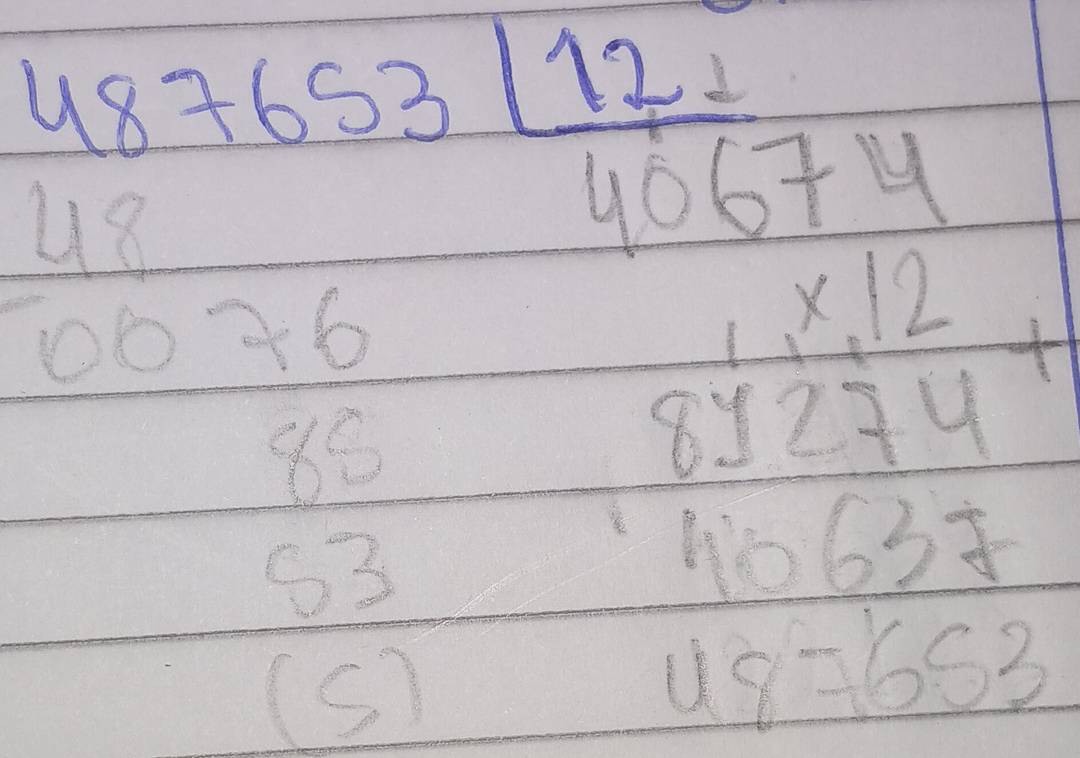 487653 12 1
48 40674
- 0076 x 12
85 81274 +
53 40637
(5) 487653